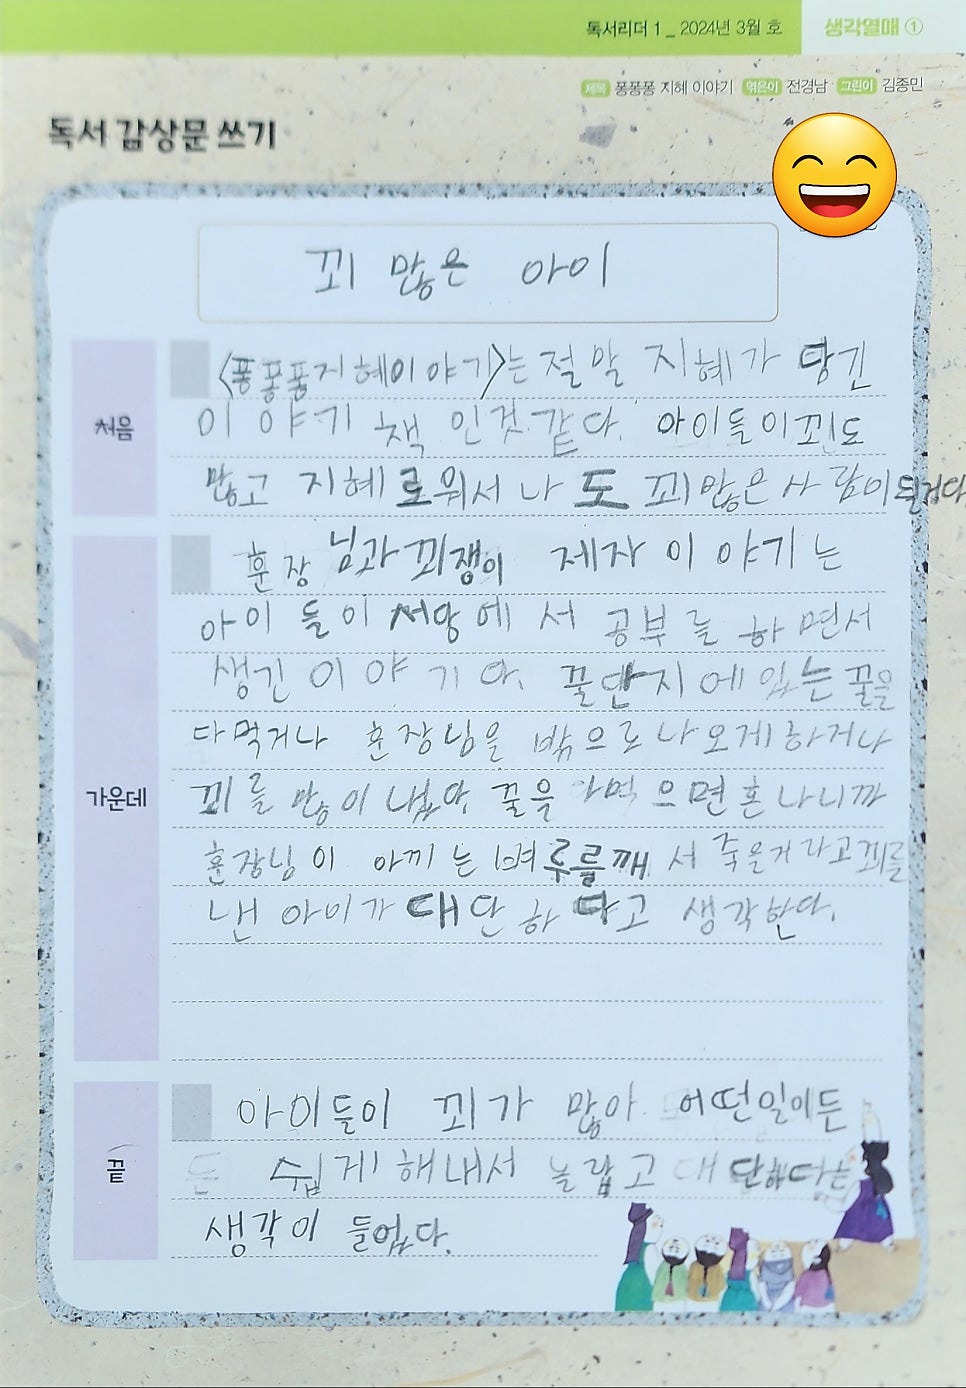 독서리더 1 _ 2024년 3월 호 생각열매 ①
제목 퐁퐁퐁 지혜 이야기 엮은이 전경남 그린이 김종민
독서 감상문 쓰기
꾀 많은 아이
처음
<퐁퐁퐁지혜이야기>는 절말 지혜가 당긴
이야기 책 인것 같다. 아이들이꾀도
많고 지혜로워서 나도 꾀많은 사람이될거다
가운데
훈장님과 꾀쟁이 제자 이야기는
아이들이 서앙에서 공부를 하면서
생긴 이야기다. 꿀단지에있는 꿀을
다먹거나 훈장님을 밖으로나오게하거나
꾀를 많이 냈다. 꿀을 다먹으면혼나니까
훈장님이 아끼는 벼루를깨서 죽을거라고꾀를
낸 아이가 대단하다고 생각한다.
끝
아이들이 꾀가 많아 어떤일이든
든 쉽게 해내서 놀랍고 대단하다는
생각이 들었다.